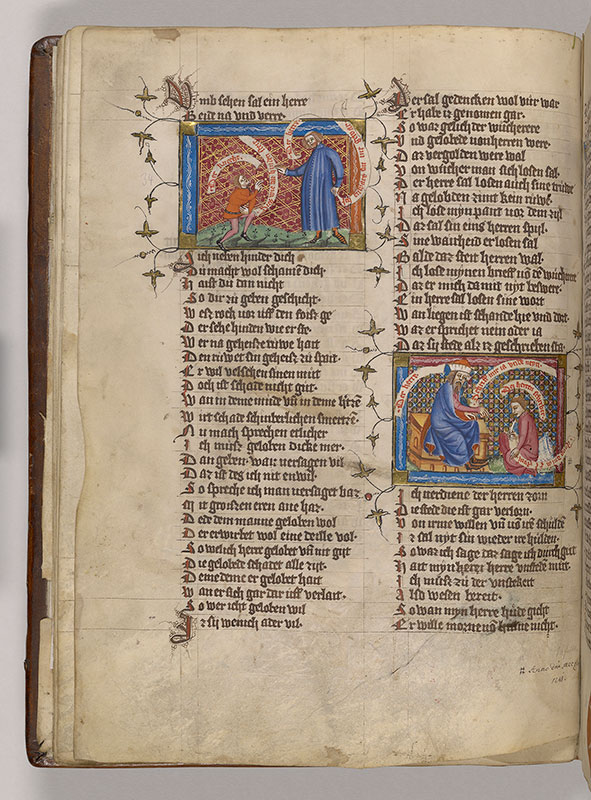 Vmb sehen sal ein herre
Beide na vnd verre
Auch neben hinder dich
Du macht wol schamē dich
Hast du dan nicht
So dir zu geben geschicht·
West roch vor uff den
Der sehe hinden wie er ste·
Wer na geheisze ruwe hait
Den ruwet sin geheisz zu spat·
Er wil velschen sinen mut
Doch ist schade nicht gut·
Wan in deme mude vn̄ in deme
Wirt schade schinberlichen smerzē·
Nu mach sprechen etlicher
Ich musz geloben dicke mer·
Dan geben· wan versagen vil
Daz ist des ich nit en wil·
So spreche ich man versaget baz
Mit groszen eren ane haz·
Dede dem manne geloben wol
Der erwirbet wol eine deille vol·
So welich herre gelobet vn̄ nit gut
Die gelobede schadet alle zijt·
Deme deme er gelobet hait
Wan er sich gar dar uff verlait·
So wer icht geloben wil
Ir sij wenich ader vil·
Der sal gedencken wol vur war
Er habe iz genomen gar·
So waz gelich der wucherere
Vnd gelobede von herren were
Daz vergolden were wal
Von wucher man sich losen sal·
Der herre sal losen auch sine
Na geloben zimt kein ruwe·
Ich lose myn pant vor dem zijl
Daz sal sin eins herren spijl·
Sine warheid er losen sal
Balde daz steit herren wal·
Ich lose mynen brieff
Daz er mich da mit nyt beswere·
Ein herre sal losen sine wort
Wan liegen ist schande hie vnd dort·
Waz er sprichet nein oder ia
Daz sij stede als iz geschrieben sta·
Der herre
Ich verdiene der herren zorn
Die stede die ist gar verlorn·
Von irme willen vn̄ von ire schulde
Iz sal nyt sin wieder ire hulden·
So waz ich sage daz sage ich durch gut
Hait myn herre herre vnstedē mut·
Ich musz zu der vnstekeit
Also wesen bereit·
So wan myn herre hude gicht
Er wille morne